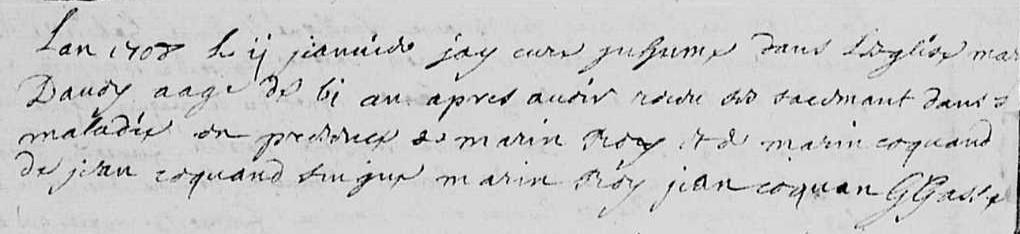 Lan 1708 le ij januier jay cure inhume dans leglise mar
Dauoy aage de 61 an apres auoir receu ses sacrmant dans s
maladie en presence de marin Roy et de marin coquand
de jean coquand singne marin Roy jean coquan GGasse